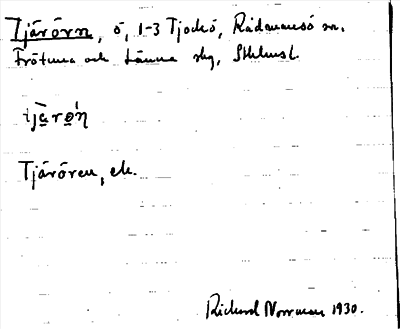 Tjärörn, ö, 1-3 Tjockö, Rådmansö sn.
Frötuna och Länna skg, Sthlmsl.
Tjärören, ek.
Richard Norrman 1930.